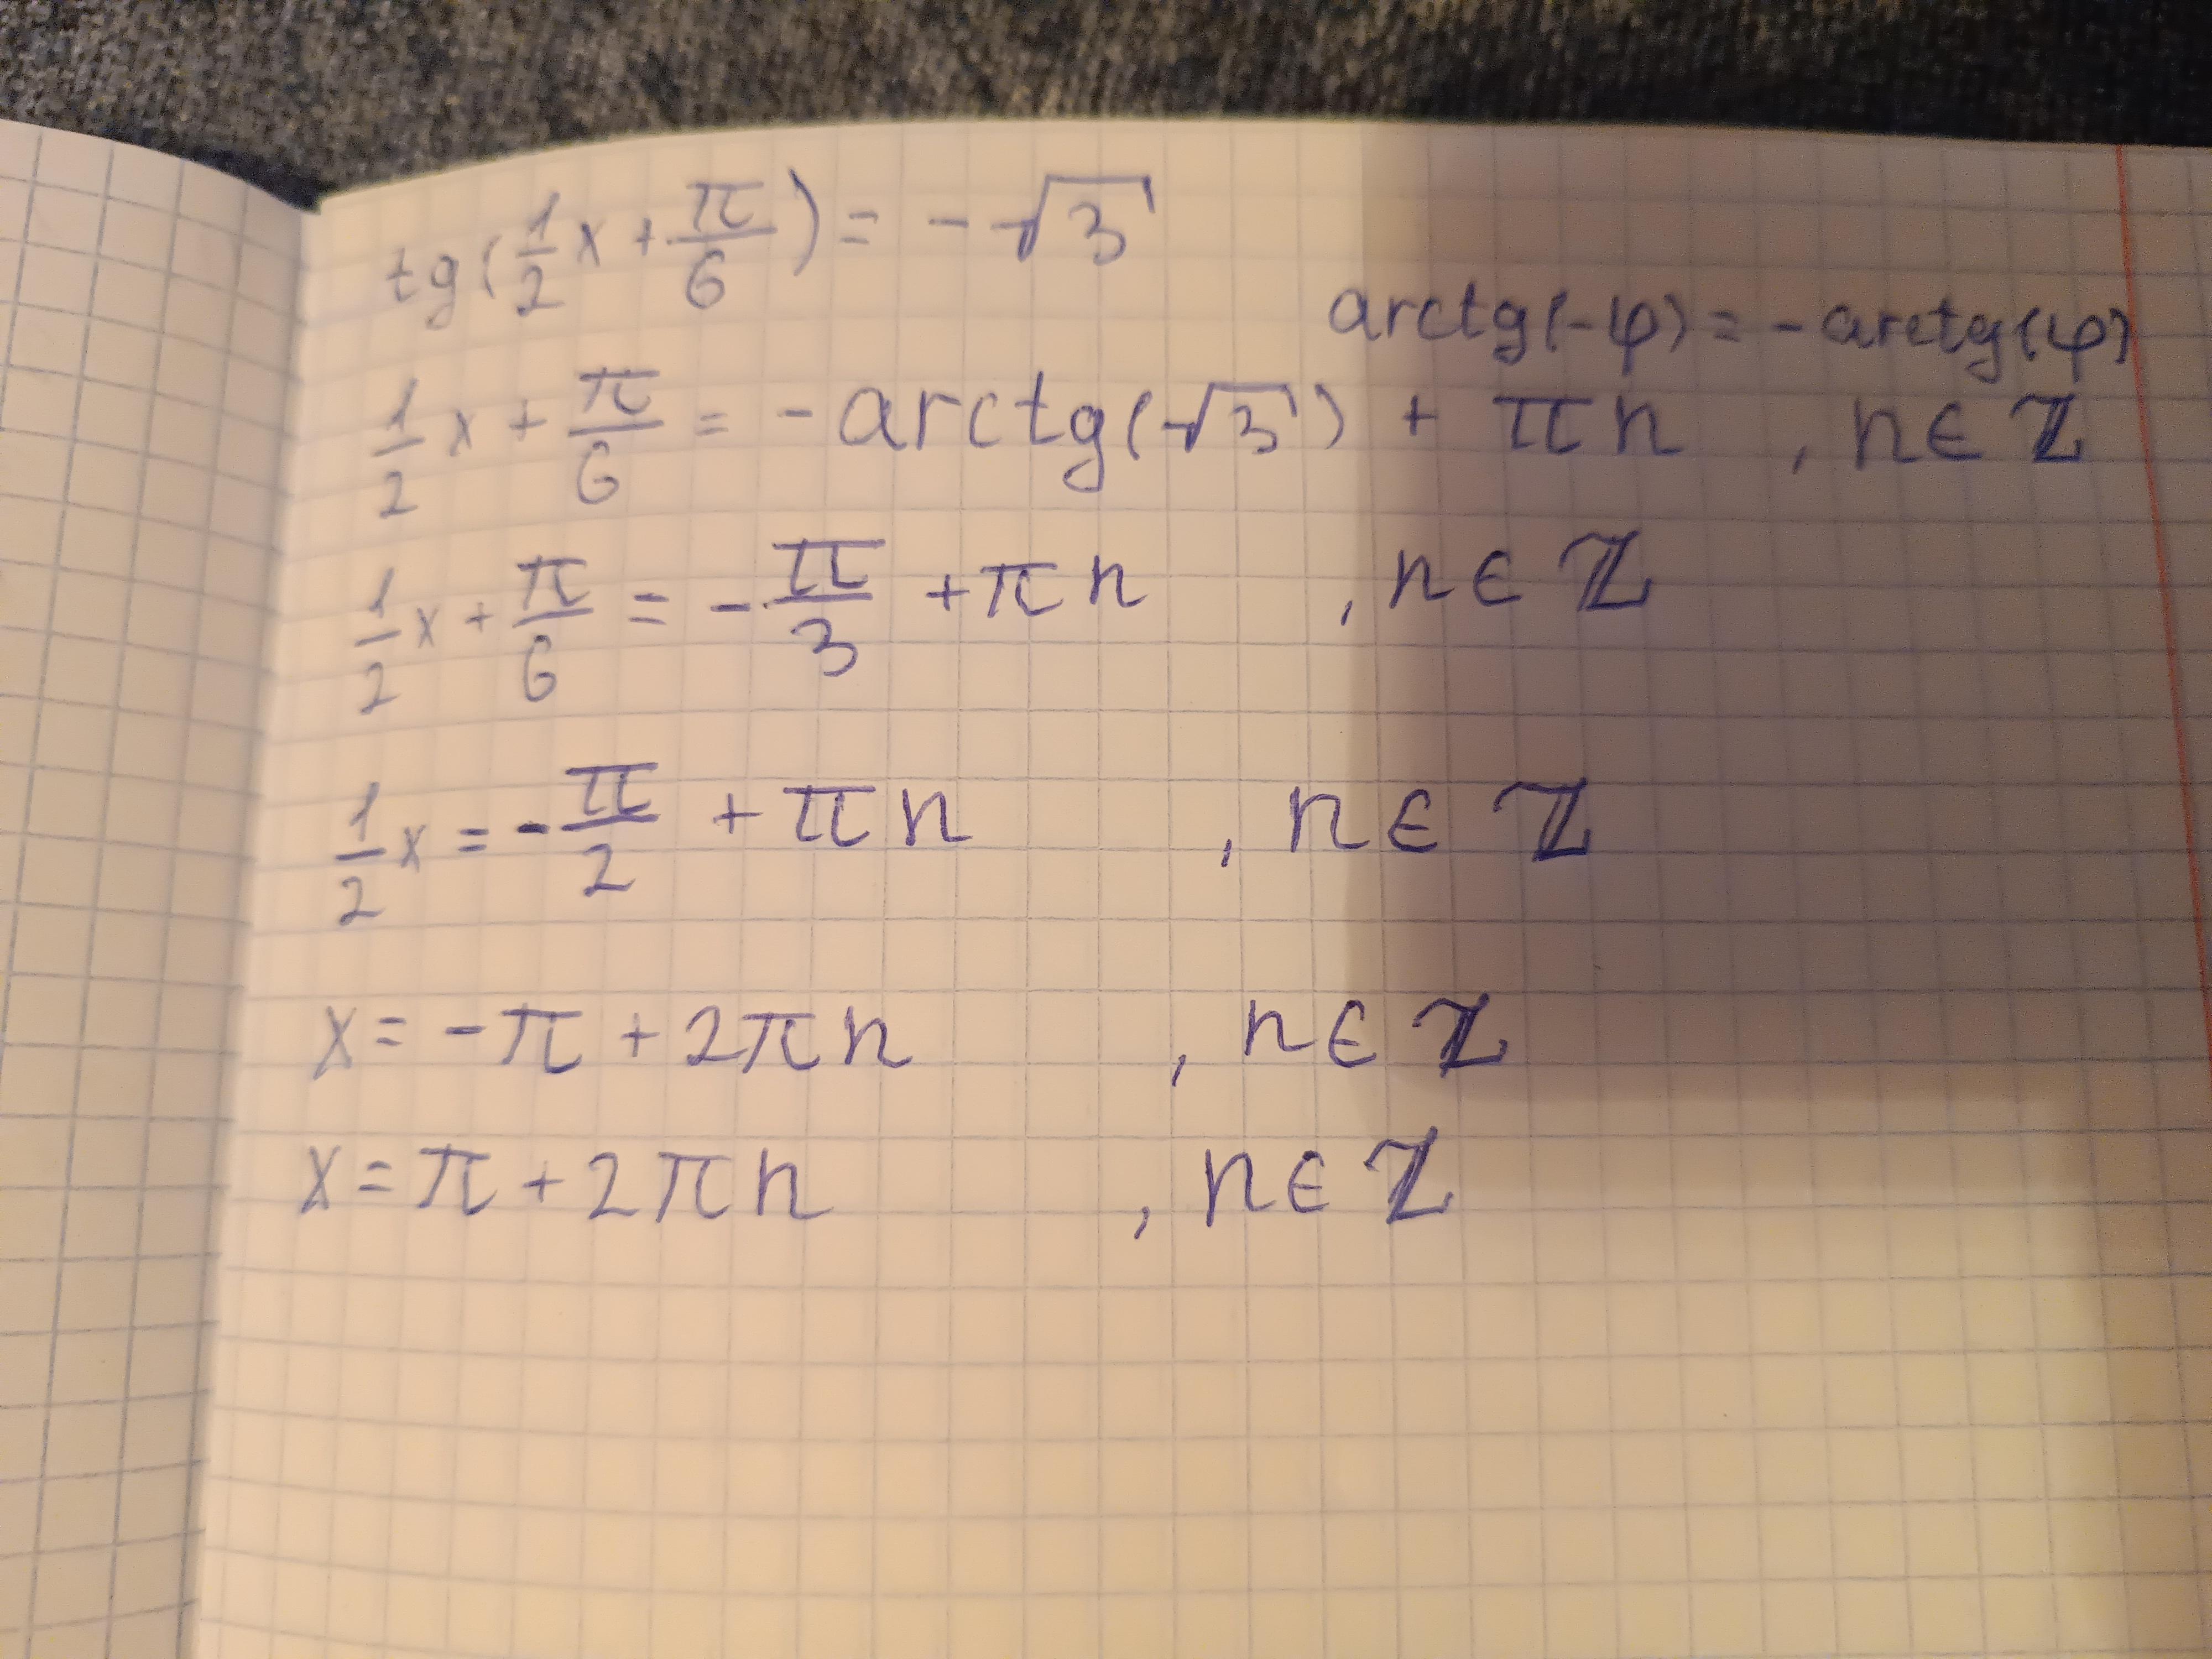 tg(1/2 x + π/6) = -√3
arctg(-φ) = -arctg(φ)
1/2 x + π/6 = -arctg(√3) + πn , n ∈ ℤ
1/2 x + π/6 = -π/3 + πn , n ∈ ℤ
1/2 x = -π/2 + πn , n ∈ ℤ
x = -π + 2πn , n ∈ ℤ
x = π + 2πn , n ∈ ℤ